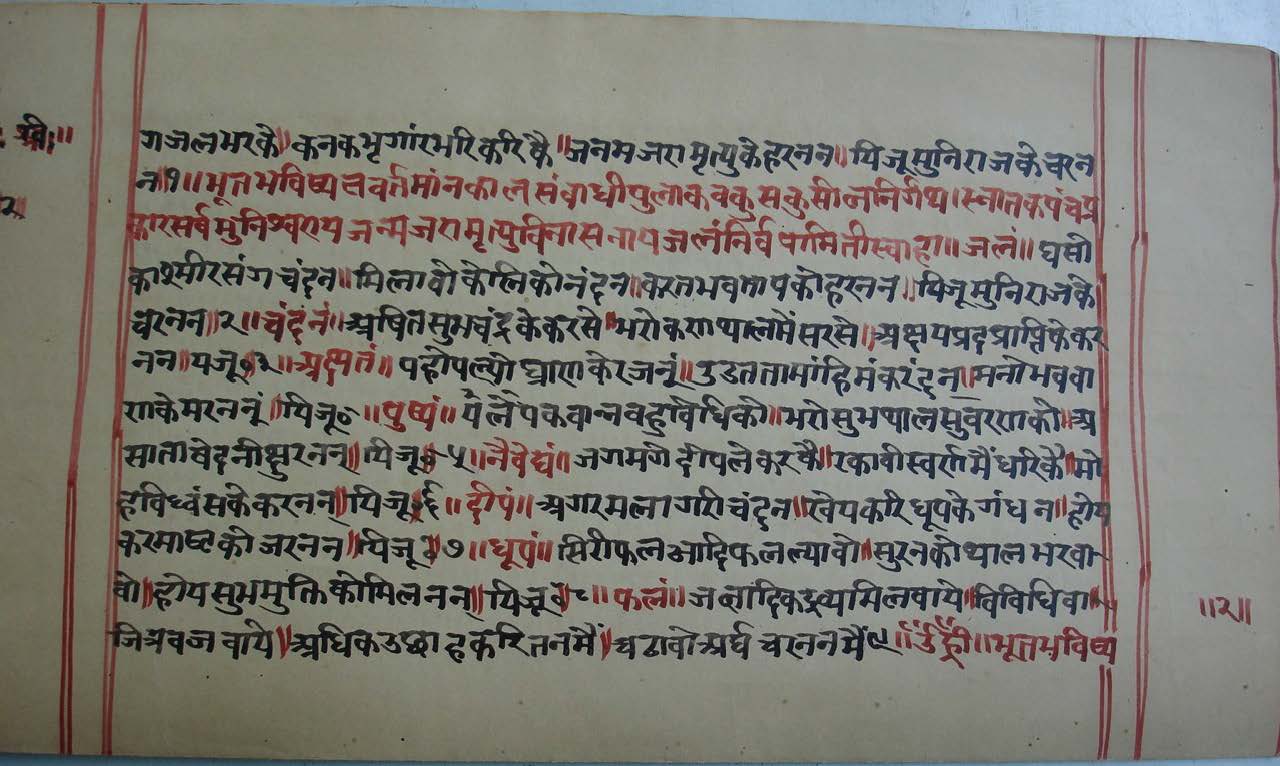 गजलभरकै॥कनकभृगांरभरिकरिकै॥जनमजरामृत्युकेहरनन॥यिजूमुनिराजकेचरन
न॥१॥भूतभविष्यतवर्तमांनकालसंबाधीपुलाकवकुसकुसीलनिर्गंथ।स्नातकपंचप्र
कारसर्वमुनिश्वरायजन्मजरामृत्युविनासनायजलंनिर्वपामितीस्वाहा॥जलं॥घसो
कास्मीरसंगचंदन॥मिलावोकेलिकोनंदन॥करतभवतापकोहरनन॥यिजूमुनिराजकै
चरनन॥२॥चंदनं॥अषितसुभचंद्रकेकरसे॥भरोकराथालमैसरसे॥अक्षयप्रदप्राप्तिकेकर
नन॥यजू०३॥अक्षतं॥पहोपल्यो घ्राराकेरजनूं॥उडततामांहिमंकरंदन॥मनोभववा
राकेमरननूं॥यिजू०॥पुष्पं॥येलैपकवान्नवहुविधिको॥भरोसुभथालसुवररगको॥अ
सातावेदनीक्षुहरनन्॥यिजू०५॥नैवेद्यं॥जगमगेदीपलेकरकै॥रकावीस्वर्रामैंधरिकै॥मो
हविध्वंसकेकरनन्॥यिजू०६॥दीपं॥अगरमलागरीचंदन॥खेयकरिधूपकेगंधन॥होय
करमाष्टकोजरनन॥यिजू०७॥धूपं॥सिरीफलआदिफलल्यावो॥सुरनकोथालभरवा
वो॥होयसुभमुक्तिकोमिलनन्॥यिजू०८॥फलं॥जलादिकद्रव्यमिलवाये॥विविधिवा
जित्रवजवाये॥अधिकउछाहकरितनमैं॥चढावोअर्घचरननमैं९॥उंह्रीं॥भूतभविष्य
॥२॥